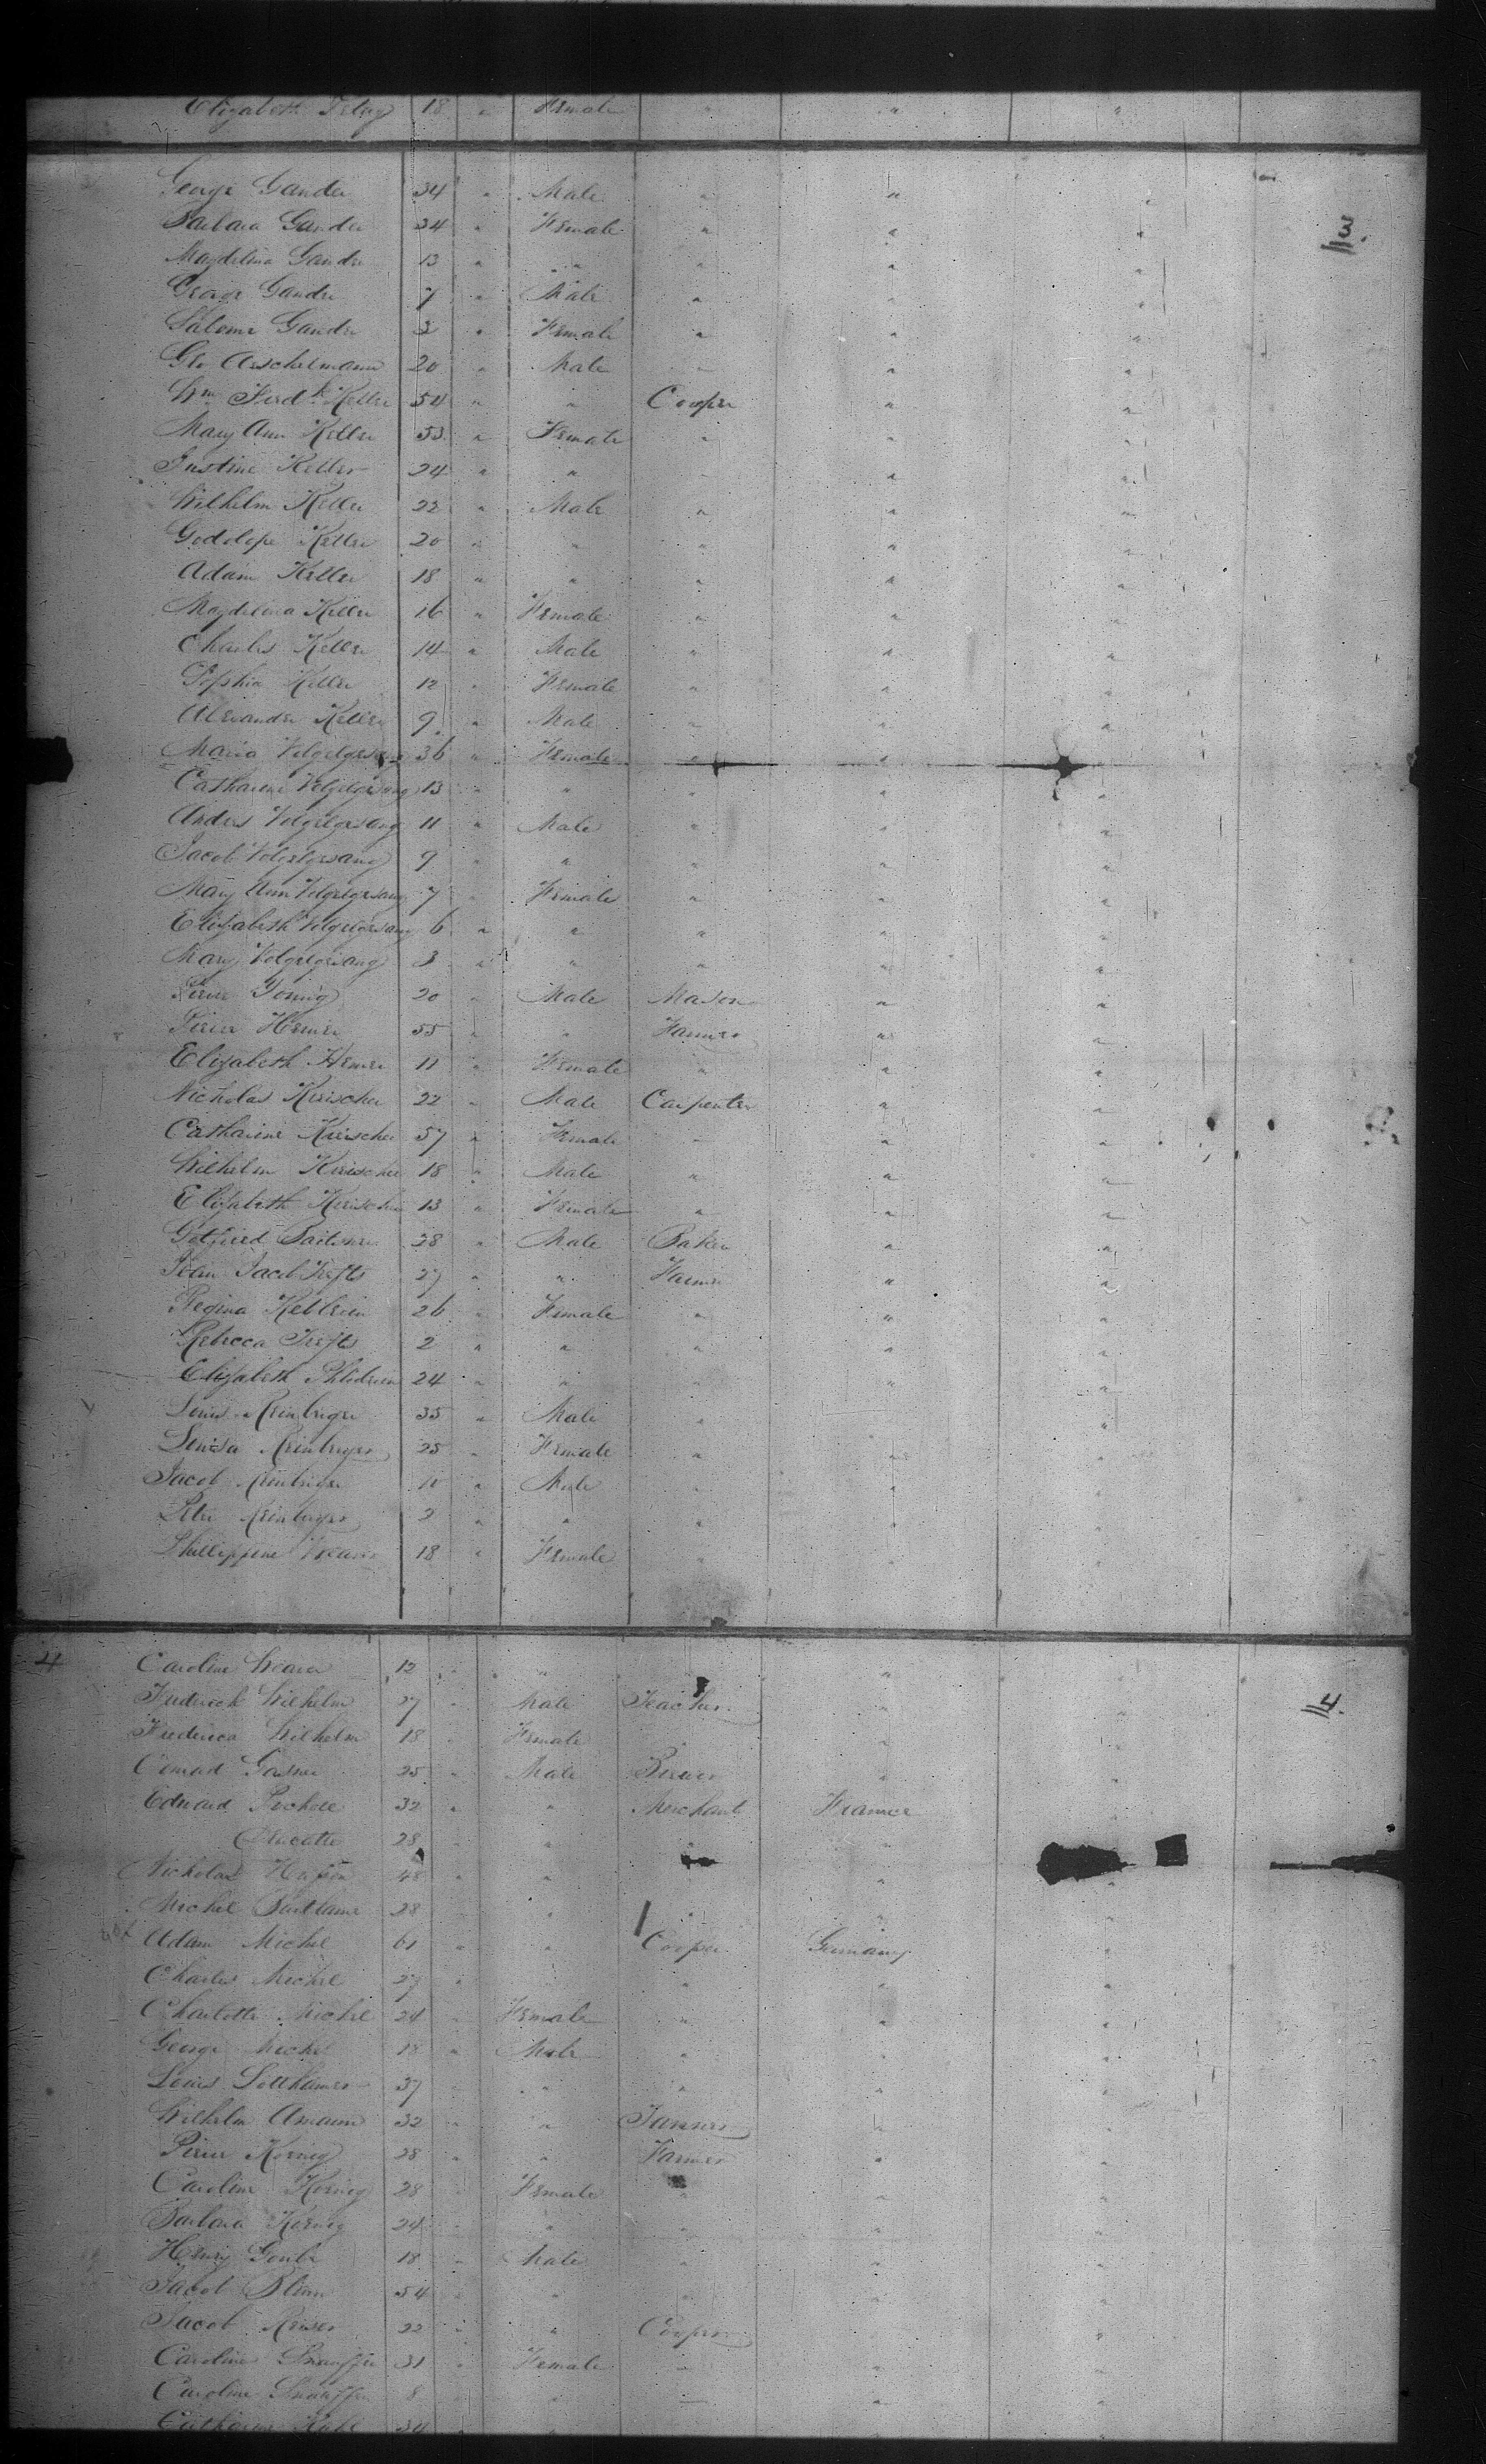 Elizabeth 18 " Female " " "
3.
George Gander 34 " Male " " "
Barbara Gander 34 " Female " " "
Magdelina Gander 13 " " " " "
George Gander 7 " Male " " "
Salome Gander 3 " Female " " "
Geo Aeschelmann 20 " Male " " "
Wm Ferdk Keller 54 " " Cooper " "
Mary Ann Keller 53 " Female " " "
Justine Keller 24 " " " " "
Wilhelm Keller 22 " Male " " "
Godolope Keller 20 " " " " "
Adam Keller 18 " " " " "
Magdelina Keller 16 " Female " " "
Charles Keller 14 " Male " " "
Sophia Keller 12 " Female " " "
Alexander Keller 9 " Male " " "
Maria Volgelgesang 36 " Female " " "
Catharine Volgelgesang 13 " " " " "
Anders Volgelgesang 11 " Male " " "
Jacob Volgelgesang 9 " " " " "
Mary Ann Volgelgesang 7 " Female " " "
Elizabeth Volgelgesang 6 " " " " "
Mary Volgelgesang 3 " " " " "
Pierre Young 20 " Male Mason " "
Pierre Hemer 55 " " Farmer " "
Elizabeth Hemer 11 " Female " " "
Nicholas Kerischer 22 " Male Carpenter " "
Catharine Kerischer 57 " Female " " "
Wilhelm Kerischer 18 " Male " " "
Elizabeth Kerischer 13 " Female " " "
Gotfried 28 " Male Baker " "
Jean Jacob Trefts 27 " " Farmer " "
Regina Keblrein 26 " Female " " "
Rebecca Trefts 2 " " " " "
Elizabeth 24 " " " " "
Louis Reinbriger 35 " Male " " "
Louisa Reinbriger 25 " Female " " "
Jacob Reinbriger 11 " Male " " "
Peter Reinbriger 2 " " " " "
Phillippine Weaver 18 " Female " " "
4 Caroline Weaver 12 " " " "
4.
Frederick Wilhelm 27 " Male Teacher " "
Frederica Wilhelm 18 " Female " "
Conrad Gasner 25 " Male Brewer " "
Edward 32 " " Merchant France "
28 " " " " "
Nicholas 48 " " " "
Michel 28 " " " "
Adam Michel 61 " " Cooper Germany "
Charles Michel 27 " " " "
Charlotte Michel 24 " Female " " "
George Michel 18 " Male " " "
Louis Sollhamer 37 " " " " "
Wilhelm Amaun 32 " " Tanner " "
Pierre Koenig 28 " " Farmer " "
Caroline Koenig 28 " Female " " "
Barbara Koenig 24 " " " " "
Henry 18 " Male " " "
Jacob Blum 54 " " " " "
Jacob Reiser 22 " " Cooper " "
Caroline Snauffer 31 " Female " " "
Caroline Snauffer 8 " " " "
Catharine 34 "